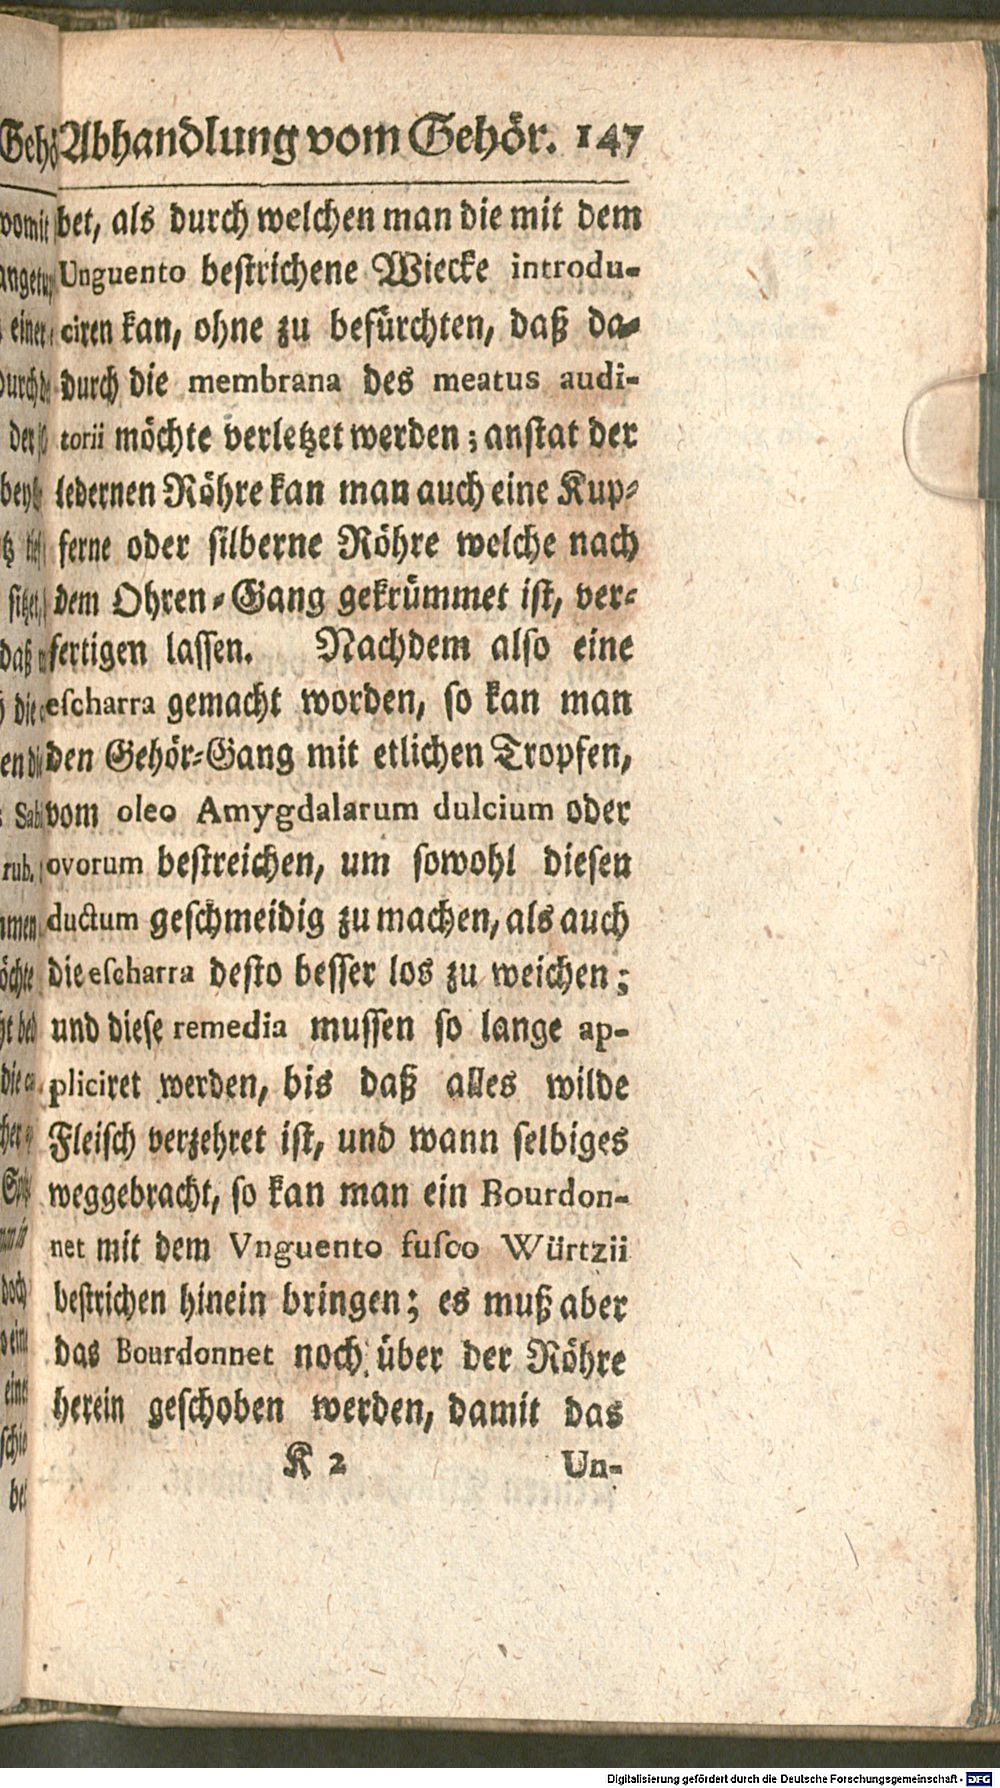 Abhandlung vom Gehör. 147
bet, als durch welchen man die mit dem
Unguento bestrichene Wiecke introdu-
ciren kan, ohne zu befürchten, daß da-
durch die membrana des meatus audi-
torii möchte verletzet werden; anstat der
ledernen Röhre kan man auch eine Kup-
ferne oder silberne Röhre welche nach
dem Ohren-Gang gekrümmet ist, ver-
fertigen lassen. Nachdem also eine
escharra gemacht worden, so kan man
den Gehör-Gang mit etlichen Tropfen,
vom oleo Amygdalarum dulcium oder
ovorum bestreichen, um sowohl diesen
ductum geschmeidig zu machen, als auch
die escharra desto besser los zu weichen;
und diese remedia mussen so lange ap-
pliciret werden, bis daß alles wilde
Fleisch verzehret ist, und wann selbiges
weggebracht, so kan man ein Bourdon-
net mit dem Vnguento fusco Würtzii
bestrichen hinein bringen; es muß aber
das Bourdonnet noch über der Röhre
herein geschoben werden, damit das
K 2 Un-
Digitalisierung gefördert durch die Deutsche Forschungsgemeinschaft - DFG